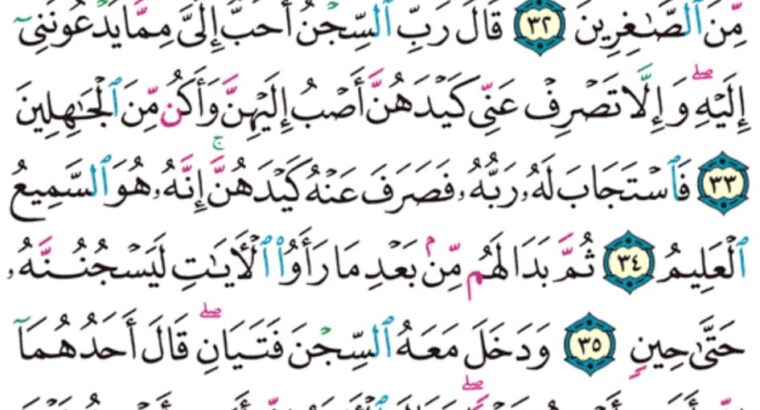 مِّنَ ٱلصَّـٰغِرِينَ ٣٢ قَالَ رَبِّ ٱلسِّجۡنُ أَحَبُّ إِلَيَّ مِمَّا يَدۡعُونَنِيٓ
إِلَيۡهِۖ وَإِلَّا تَصۡرِفۡ عَنِّي كَيۡدَهُنَّ أَصۡبُ إِلَيۡهِنَّ وَأَكُن مِّنَ ٱلۡجَـٰهِلِينَ
٣٣ فَٱسۡتَجَابَ لَهُۥ رَبُّهُۥ فَصَرَفَ عَنۡهُ كَيۡدَهُنَّۚ إِنَّهُۥ هُوَ ٱلسَّمِيعُ
ٱلۡعَلِيمُ ٣٤ ثُمَّ بَدَا لَهُم مِّنۢ بَعۡدِ مَا رَأَوُاْ ٱلۡأٓيَـٰتِ لَيَسۡجُنُنَّهُۥ
حَتَّىٰ حِينٖ ٣٥ وَدَخَلَ مَعَهُ ٱلسِّجۡنَ فَتَيَانِۖ قَالَ أَحَدُهُمَآ